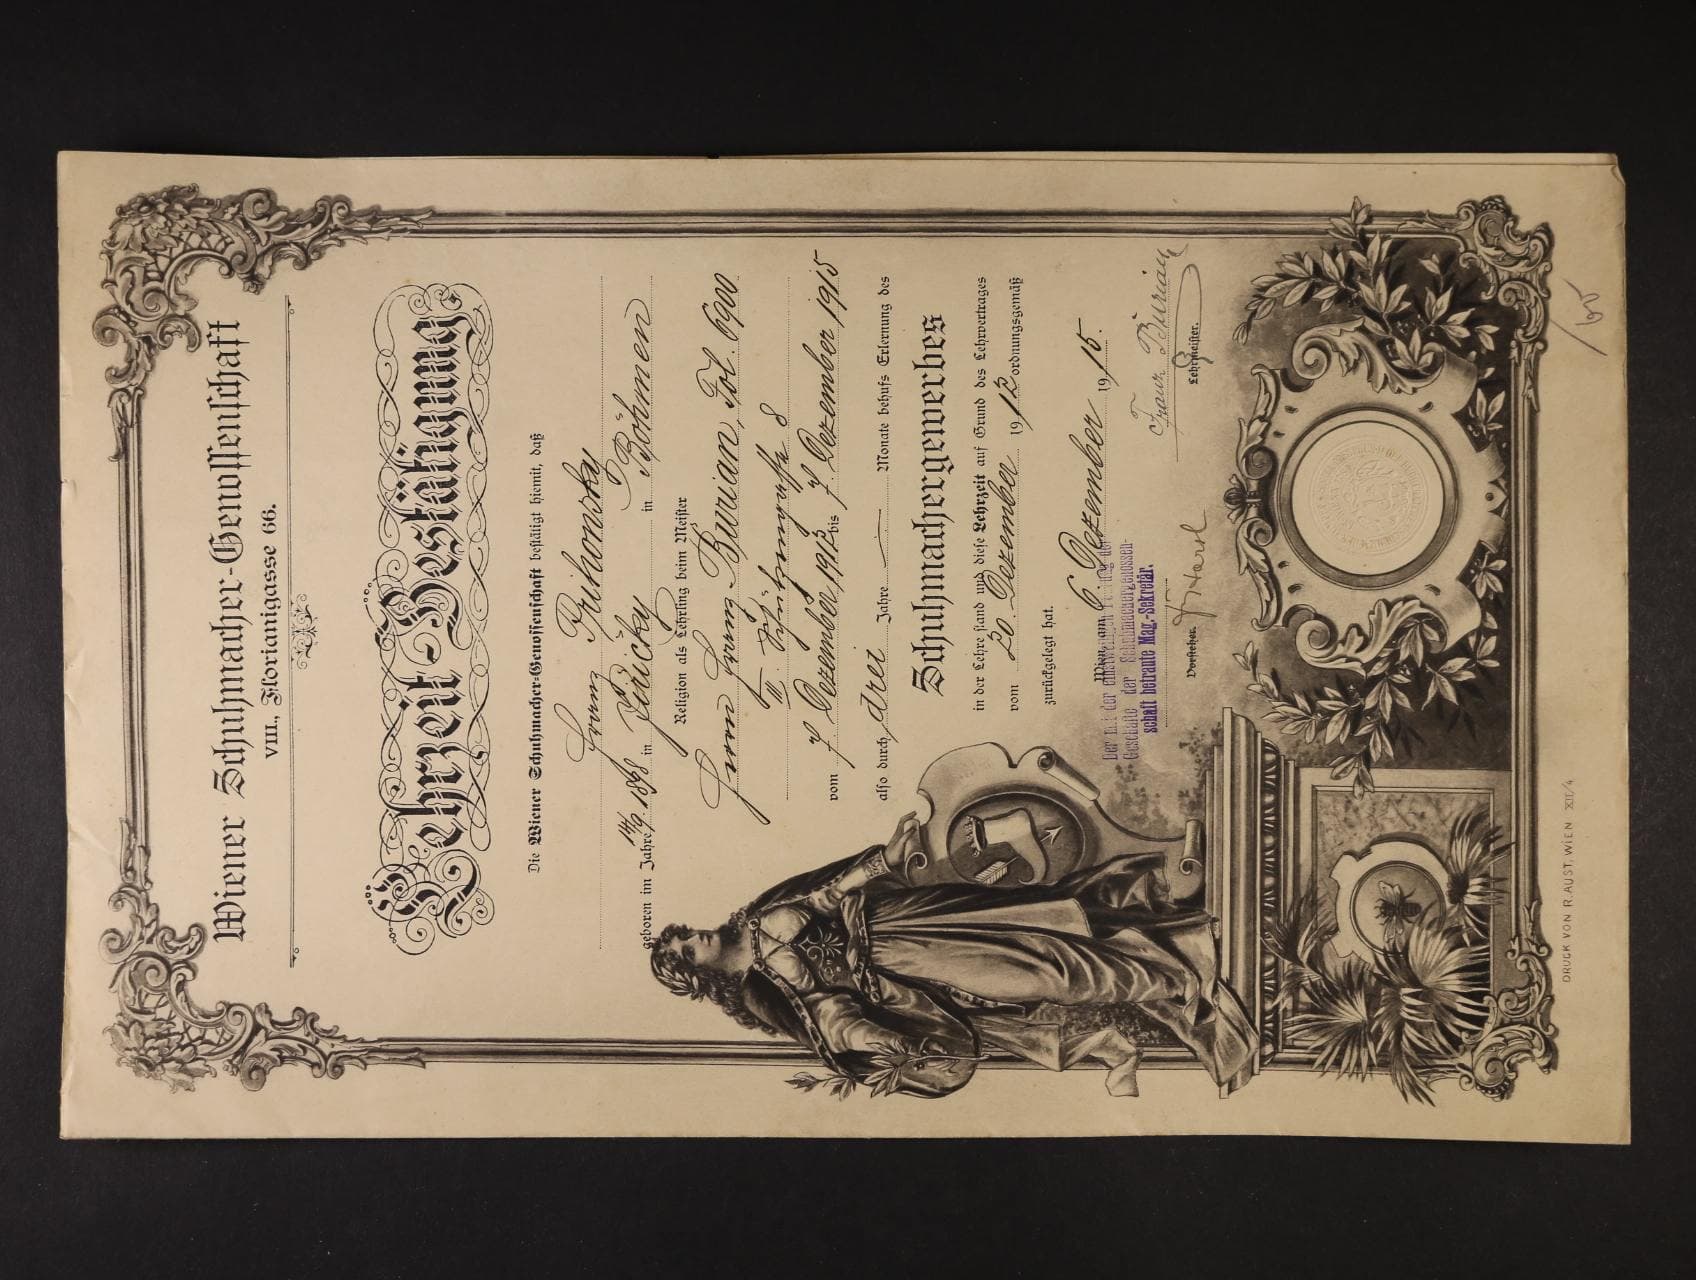 Wiener Schuhmacher-Genossenschaft
VIII., Florianigasse 66.
Lehrzeit-Bestätigung
Die Wiener Schuhmacher-Genossenschaft bestätigt hiemit, daß
Franz Prihowsky
geboren im Jahre 14/9. 1898 in in Böhmen
Religion als Lehrling beim Meister
Herrn Franz Burian, Fol. 6900
III. 8
vom 7. Dezember 1912 bis 7. Dezember 1915
also durch drei Jahre — Monate behufs Erlernung des
Schuhmachergewerbes
in der Lehre stand und diese Lehrzeit auf Grund des Lehrvertrages
vom 20. Dezember 1912 ordnungsgemäß
zurückgelegt hat.
Wien, am 6. Dezember 1915.
Der mit der einstweiligen Leitung der
Geschäfte der Schuhmachergenossen-
schaft betraute Mag.-Sekretär.
Franz Burian
Vorsteher. Lehrmeister.
DRUCK VON R. AUST, WIEN XII/4